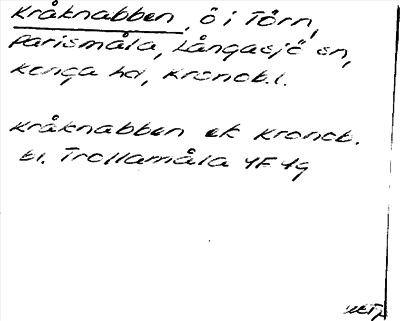 Kråknabben, ö i Törn,
Parismåla, Långasjö sn,
Konga hd, Kronob.l.
Kråknabben ek Kronob.
bl. Trollamåla 4F 4g